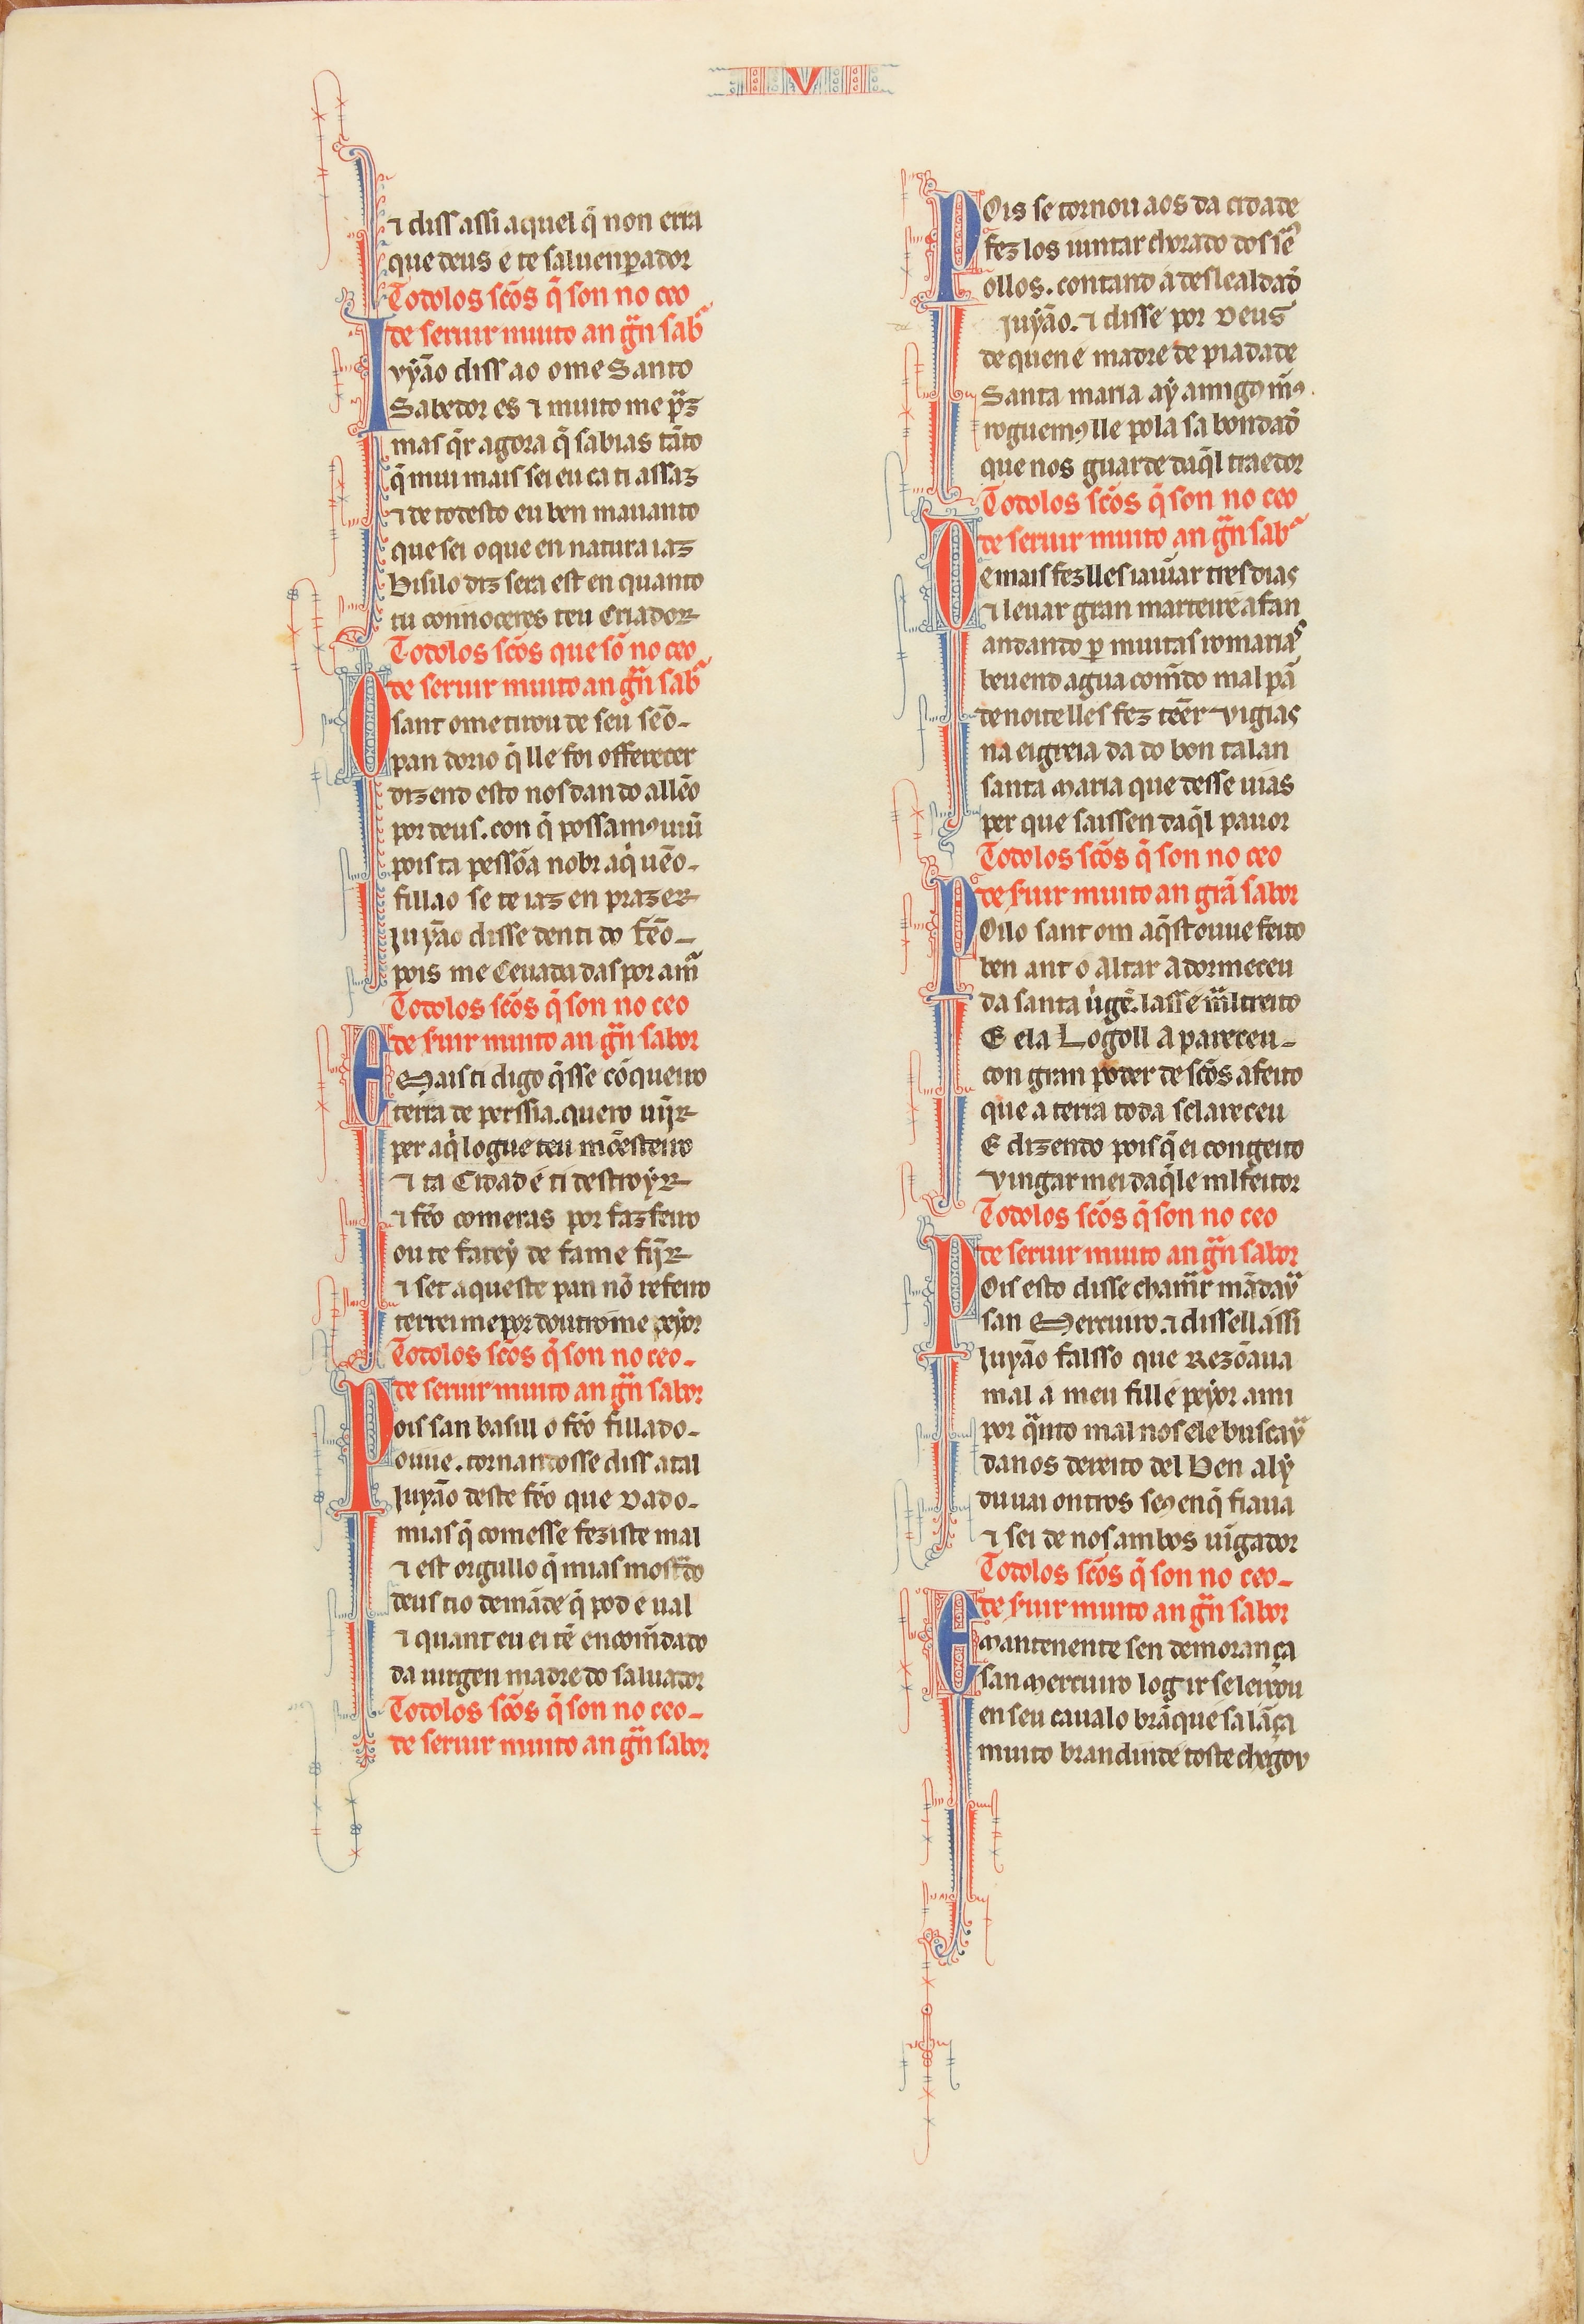 V
⁊ diss assi aquel q̃ non erra
que deus e te saluenꝑador
Todolos sc̃os q̃ son no ceo
de seruir muito an grã̃n sab̃
Iuyão diss ao ome Santo
Sabedor es ⁊ muito me p̃z
mas q̃r agora q̃ sabias tãto
q̃ mui mais sei eu ca ti assaz
⁊ de todesto eu ben mauanto
que sei o que en natura iaz
Bisilo diz sera est en quanto
tu connoceres teu Criador
Todolos sc̃os que sõ no ceo
de seruir muito an gr̃n sab̃
O sant ome tirou de seu sẽo
pan dorio q̃ lle foi offerecer
dizend esto nos dan do allẽo
por deus. con q̃ possamꝰ uiũ
pois ta pessõa nobr aq̇ uẽo
fillao se te iaz en prazer
Juyão disse denti do fẽo
pois me Ceuada das por am̃
Todolos sc̃os q̃ son no ceo
de s̃uir muito an gr̃n sabor
E Mais ti digo q̃sse cõqueiro
terra de perssia. quero uĩjr
per aq̇ logue teu mõesteiro
⁊ ta Cidad é ti destroyr
⁊ fẽo comeras por fazfeiro
ou te farey de fame fĩjr
⁊ set aqueste pan nõ refeiro
terreime por doutrome peyor
Todolos sc̃os q̃ son no ceo
de seruir muito an gr̃n sabor
Pois san basill o fẽo fillado
ouue. tornandosse diss atal
Juyão deste fẽo que dado
mias q̃ comesse feziste mal
⁊ est orgullo q̃ mias most̃do
deus tio demãde q̃ pod e ual
⁊ quant eu ei tẽ encom̃dado
da uirgen madre do saluador
Todolos sc̃os q̃ son no ceo
de seruir muito an gr̃n sabor
Pois se tornou aos da cidade
fez los iuntar chorãdo dos sẽꝰ
ollos. contand a deslealdad̃
Juyão. ⁊ disse por deus
de quen e madre de piadade
Santa maria aẏ amigꝰ m̃ꝰ
roguemꝰ lle pola sa bondad̃
que nos guarde daq̃l traedor
Todolos sc̃os q̃ son no ceo
de seruir muito an gr̃n sab̃
De mais fezlles iaiũar tres dias
⁊ leuar gran marteire afan
andando ꝑ muitas romarias
beuend agua com̃do mal pã
de noite lles fez tẽer vigias
na eigreia da do bon talan
santa Maria que desse uias
per que saissen daq̃l pauor
Todolos sc̃os q̃ son no ceo
de s̃uir muito an grã sabor
Poilo sant om aq̃st ouue feito
ben ant o altar adormeceu
da santa ũgẽ. lasse m̃ltreito
E ela Logoll apareceu
con gran poder de sc̃os afeito
que a terra toda sclareceu
E dizendo pois q̃ ei congeito
vingar mei daq̃le mlfeitor
Todolos sc̃os q̃ son no ceo
de seruir muito an gr̃n sabor
Pois esto disse cham̃r mãdaỹ
san Mercuiro. ⁊ dissell assi
Juyão falsso que Rezõaua
mal a meu fill e peyor ami
por q̃nto mal nos ele buscaỹ
danos dereito del Ben aly
du uai ontros seꝰ enq̃ fiaua
⁊ sei de nos ambos uĩgador
Todolos sc̃os q̃ son no ceo
de s̃uir muito an gr̃n sabor
E Mantenente sen demorança
san Mercuiro log ir se leixou
en seu caualo brãque sa lãça
muito brandinde toste chegou